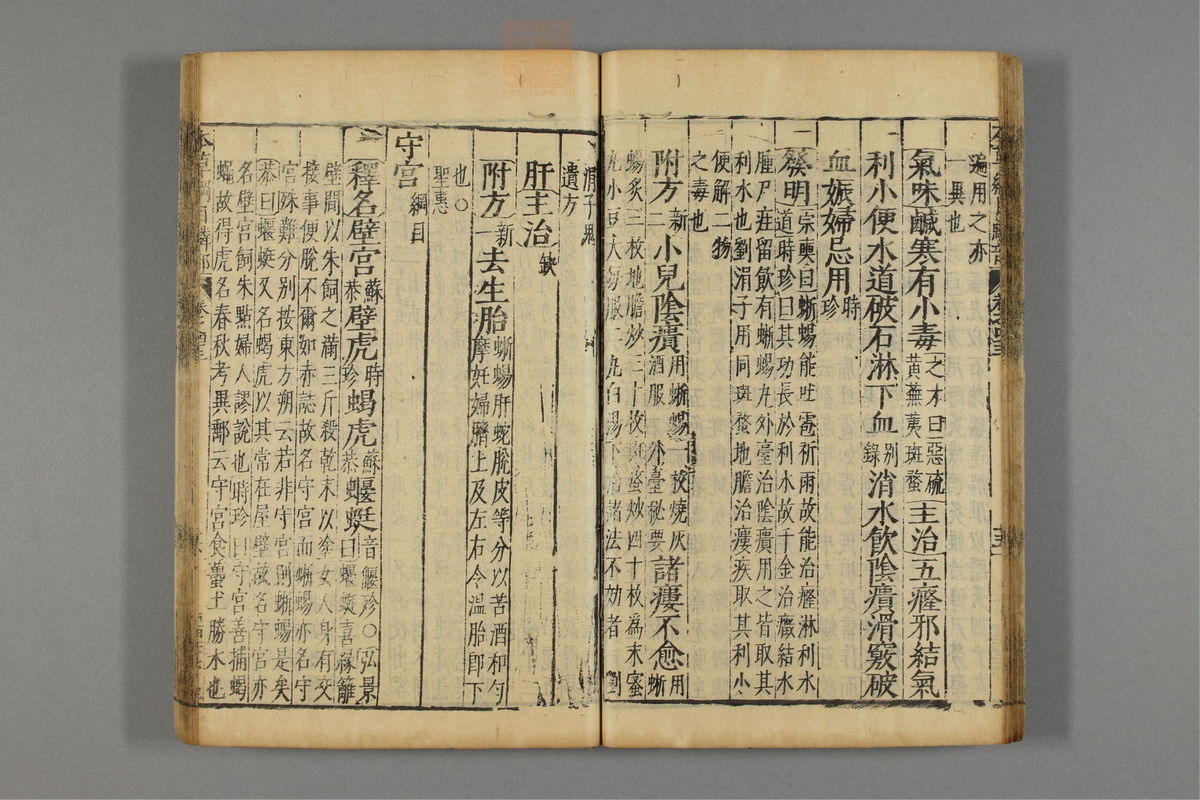 遍用之亦
一異也
氣味鹹寒有小毒之才曰惡硫黃蕪荑斑蝥主治五癃邪結氣
利小便水道破石淋下血別錄消水飲陰㿉滑竅破
血娠婦忌用時珍
發明宗奭曰蜥蜴能吐雹祈雨故能治癃淋利水
道時珍曰其功長於利水故千金治癥結水
腫尸疰留飲有蜥蜴丸外臺治陰㿉用之皆取其
利水也劉涓子用同斑蝥地膽治瘻疾取其利小
便解二物
之毒也
附方新二小兒陰㿉用蜥蜴一枚燒灰酒服外臺秘要諸瘻不愈用蜥
蜴炙三枚地膽炒三十枚斑蝥炒四十枚爲末蜜
丸小豆大每服二丸白湯下治諸法不効者劉
涓子鬼
遺方
肝主治缺
附方新一去生胎蜥蜴肝蛇脫皮等分以苦酒和勻摩妊婦臍上及左右令溫胎即下
也○
聖惠
守宮綱目
釋名壁宮蘇恭壁虎時珍蝎虎蘇恭蝘蜓音偃殄○弘景曰蝘蜓喜緣籬
壁間以朱飼之滿三斤殺乾末以塗女人身有交
接事便脫不爾如赤誌故名守宮而蜥蜴亦名守
宮殊難分別按東方朔云若非守宮則蜥蜴是矣
恭曰蝘蜓又名蝎虎以其常在屋壁故名守宮亦
名壁宮飼朱點婦人謬說也時珍曰守宮善捕蝎
蠅故得虎名春秋考異鄠云守宮食蠆土勝水也